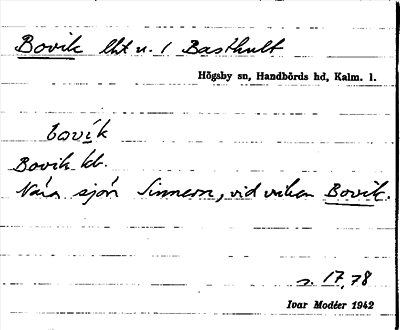 Bovik lht u. 1 Basthult
Högsby sn, Handbörds hd, Kalm. l.
bovik
Bovik kb.
Nära sjön Sinnern, vid viken Bovik.
s. 17, 78
Ivar Modéer 1942